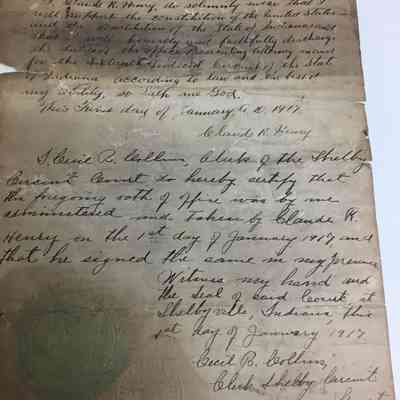 I, Claude R. Henry, do solemnly swear that I
will support the constitution of the United States
and the constitution of the State of Indiana and
that I will honestly and faithfully discharge
the duties of the office of Prosecuting Attorney
for the Judicial Circuit of the State
of Indiana according to law and the best of
my ability, so help me God.
This First day of January A.D. 1917.
Claude R. Henry
I, Cecil B. Collins, Clerk of the Shelby
Circuit Court do hereby certify that
the foregoing oath of office was by me
administered and taken by Claude R.
Henry on the 1st day of January 1917 and
that he signed the same in my presence
Witness my hand and
the seal of said Court, at
Shelbyville, Indiana, this
1st day of January 1917
Cecil B. Collins,
Clerk Shelby Circuit
Court